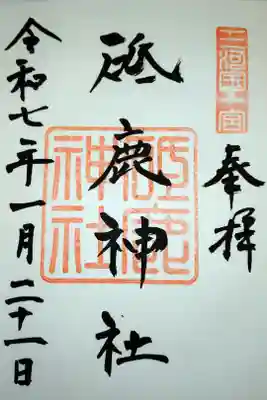 三河國一宮
奉拝
砥鹿神社
砥鹿神社
令和七年一月二十一日